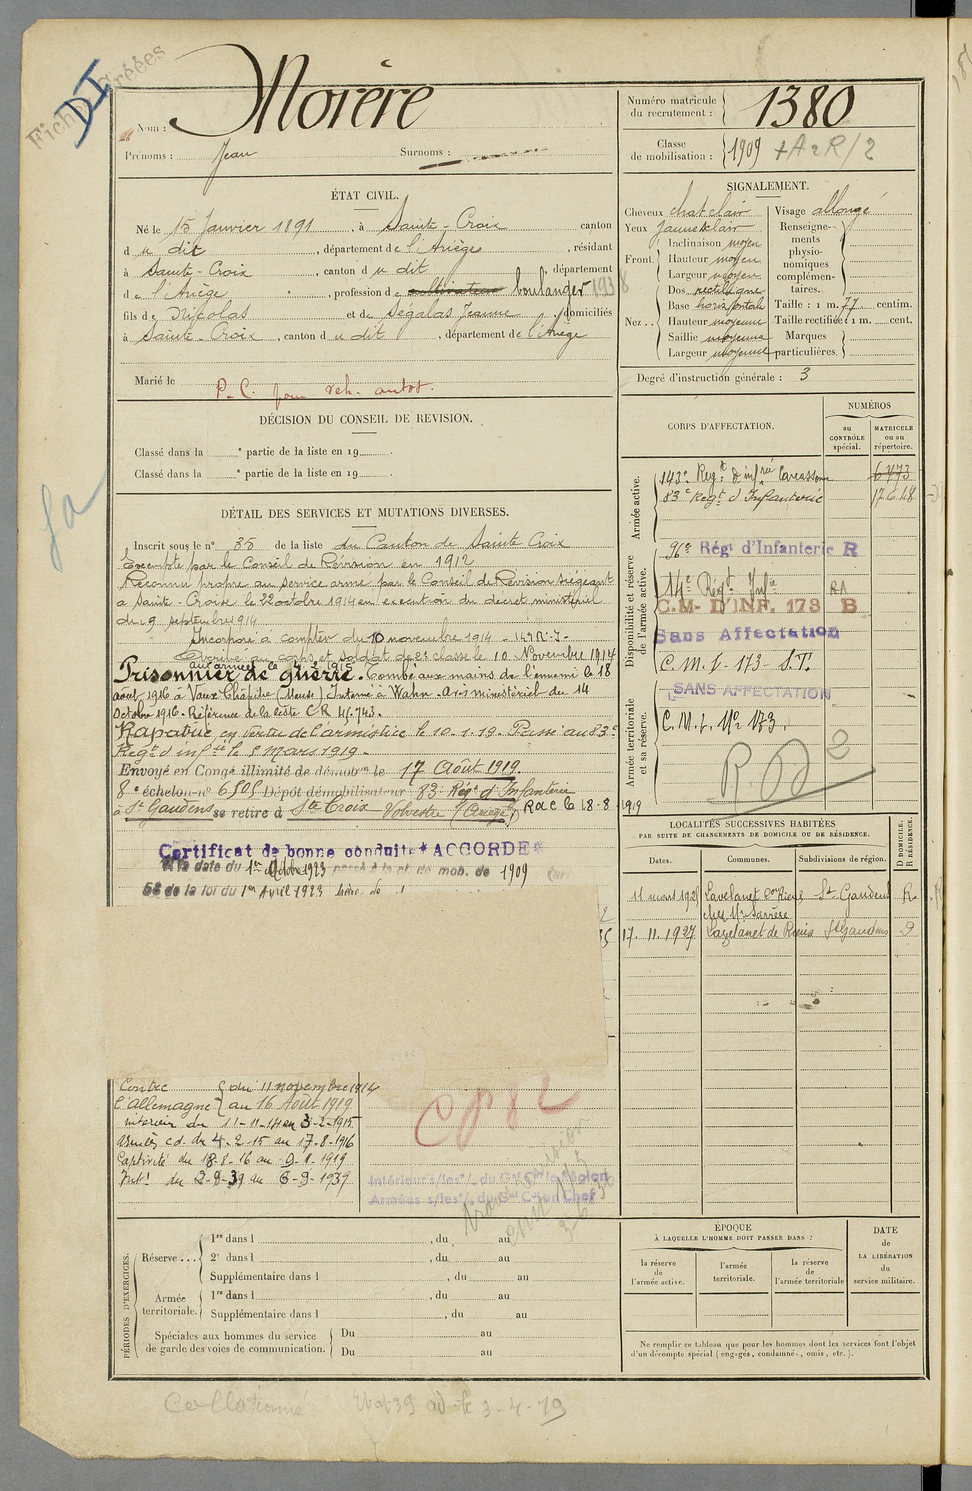 Morère
Nom :
Prénoms : Jean Surnoms :
Numéro matricule du recrutement : 1380
Classe de mobilisation : 1909
ÉTAT CIVIL.
Né le 15 Janvier 1891, à Sainte-Croix canton
d u dit, département de l'Ariège, résidant
à Sainte-Croix, canton d u dit, département
de l'Ariège, profession de cultivateur boulanger 1938
fils de Nicolas et de Ségalas Jeanne domiciliés
à Sainte-Croix, canton d u dit, département de l'Ariège
Marié le
P.C. pour reh. autot.
SIGNALEMENT.
Cheveux chat clair Visage allongé
Yeux jaunes clair
Front. Inclinaison moyen
Hauteur moyen
Largeur moyen
Nez.. Dos rectiligne
Base horizontale
Hauteur moyenne
Saillie moyenne
Largeur moyenne
Renseignements physionomiques complémentaires.
Taille : 1 m. 77 centim.
Taille rectifiée : 1 m. cent.
Marques particulières.
Degré d'instruction générale : 3
DÉCISION DU CONSEIL DE REVISION.
Classé dans la e partie de la liste en 19
Classé dans la e partie de la liste en 19
DÉTAIL DES SERVICES ET MUTATIONS DIVERSES.
Inscrit sous le n° 35 de la liste du Canton de Sainte Croix
Exempté par le Conseil de Révision en 1912
Reconnu propre au service armé par le Conseil de Révision siégeant
à Sainte-Croix le 22 octobre 1914 en exécution du décret ministériel
du 9 septembre 1914
Incorporé à compter du 10 novembre 1914 - 143 R.I-
Arrivé au corps et soldat de 2e classe le 10 Novembre 1914
aux armées le 4-2-1915
Prisonnier de guerre. Tombé aux mains de l'ennemi le 18
août 1916 à Vaux Chapitre (Meuse) Interné à Wahn. avis ministériel du 14
Octobre 1916. Référence de la liste CR 45.743.
Rapatrié en vertu de l'armistice le 10-1-19. Passé au 83e
Regt d'infrie le 5 Mars 1919.
Envoyé en Congé illimité de démobon le 17 Août 1919.
8e échelon no 6505 Dépôt démobilisateur 83e Régt d'Infanterie
à St Gaudens se retire à Ste Croix Volvestre (Ariège) Rac le 18-8-1919
Certificat de bonne conduite *ACCORDÉ*
de mob. de 1909
58 de la loi du 1er Avril 1923
Contre l'Allemagne du 11 novembre 1914
au 16 Août 1919
Intérieur du 11-11-14 au 3-2-1915
armées cd. du 4-2-15 au 17-8-1916
Captivité du 18-8-16 au 9-1-1919
Intr du 2-9-39 au 6-9-1939
Intérieur s/les o/ du Gal Ct la région
Armées s/les o/ du Gal Ct en Chef
CORPS D'AFFECTATION.
NUMÉROS
au CONTRÔLE spécial.
MATRICULE ou au répertoire.
Armée active.
143e Regt d'infrie Carcassonne 6473
83e Regt d'Infanterie 17648
Disponibilité et réserve de l'armée active.
96e Régt d'Infanterie R
14e Régt Infie RA
C.M- D'INF. 173 B
Sans Affectation
C.M.I-173-S.T.
Armée territoriale et sa réserve.
SANS AFFECTATION
C.M.I. No 173.
LOCALITÉS SUCCESSIVES HABITÉES
PAR SUITE DE CHANGEMENTS DE DOMICILE OU DE RÉSIDENCE.
D. DOMICILE. R. RÉSIDENCE.
Dates. Communes. Subdivisions de région.
11 mars 1925 Lavelanet St Gaudens R.
chez Mr
17.11.1927 Lavelanet de Rieux St Gaudens D
PÉRIODES D'EXERCICES.
Réserve... 1re dans l , du au
2e dans l , du au
Supplémentaire dans l , du au
Armée territoriale. 1re dans l , du au
Supplémentaire dans l , du au
Spéciales aux hommes du service de garde des voies de communication. Du au
Du au
ÉPOQUE
À LAQUELLE L'HOMME DOIT PASSER DANS :
la réserve de l'armée active.
l'armée territoriale.
la réserve de l'armée territoriale
DATE de LA LIBÉRATION du service militaire.
Ne remplir ce tableau que pour les hommes dont les services font l'objet
d'un décompte spécial (engagés, condamnés, omis, etc.).
Collationné
3-4-19